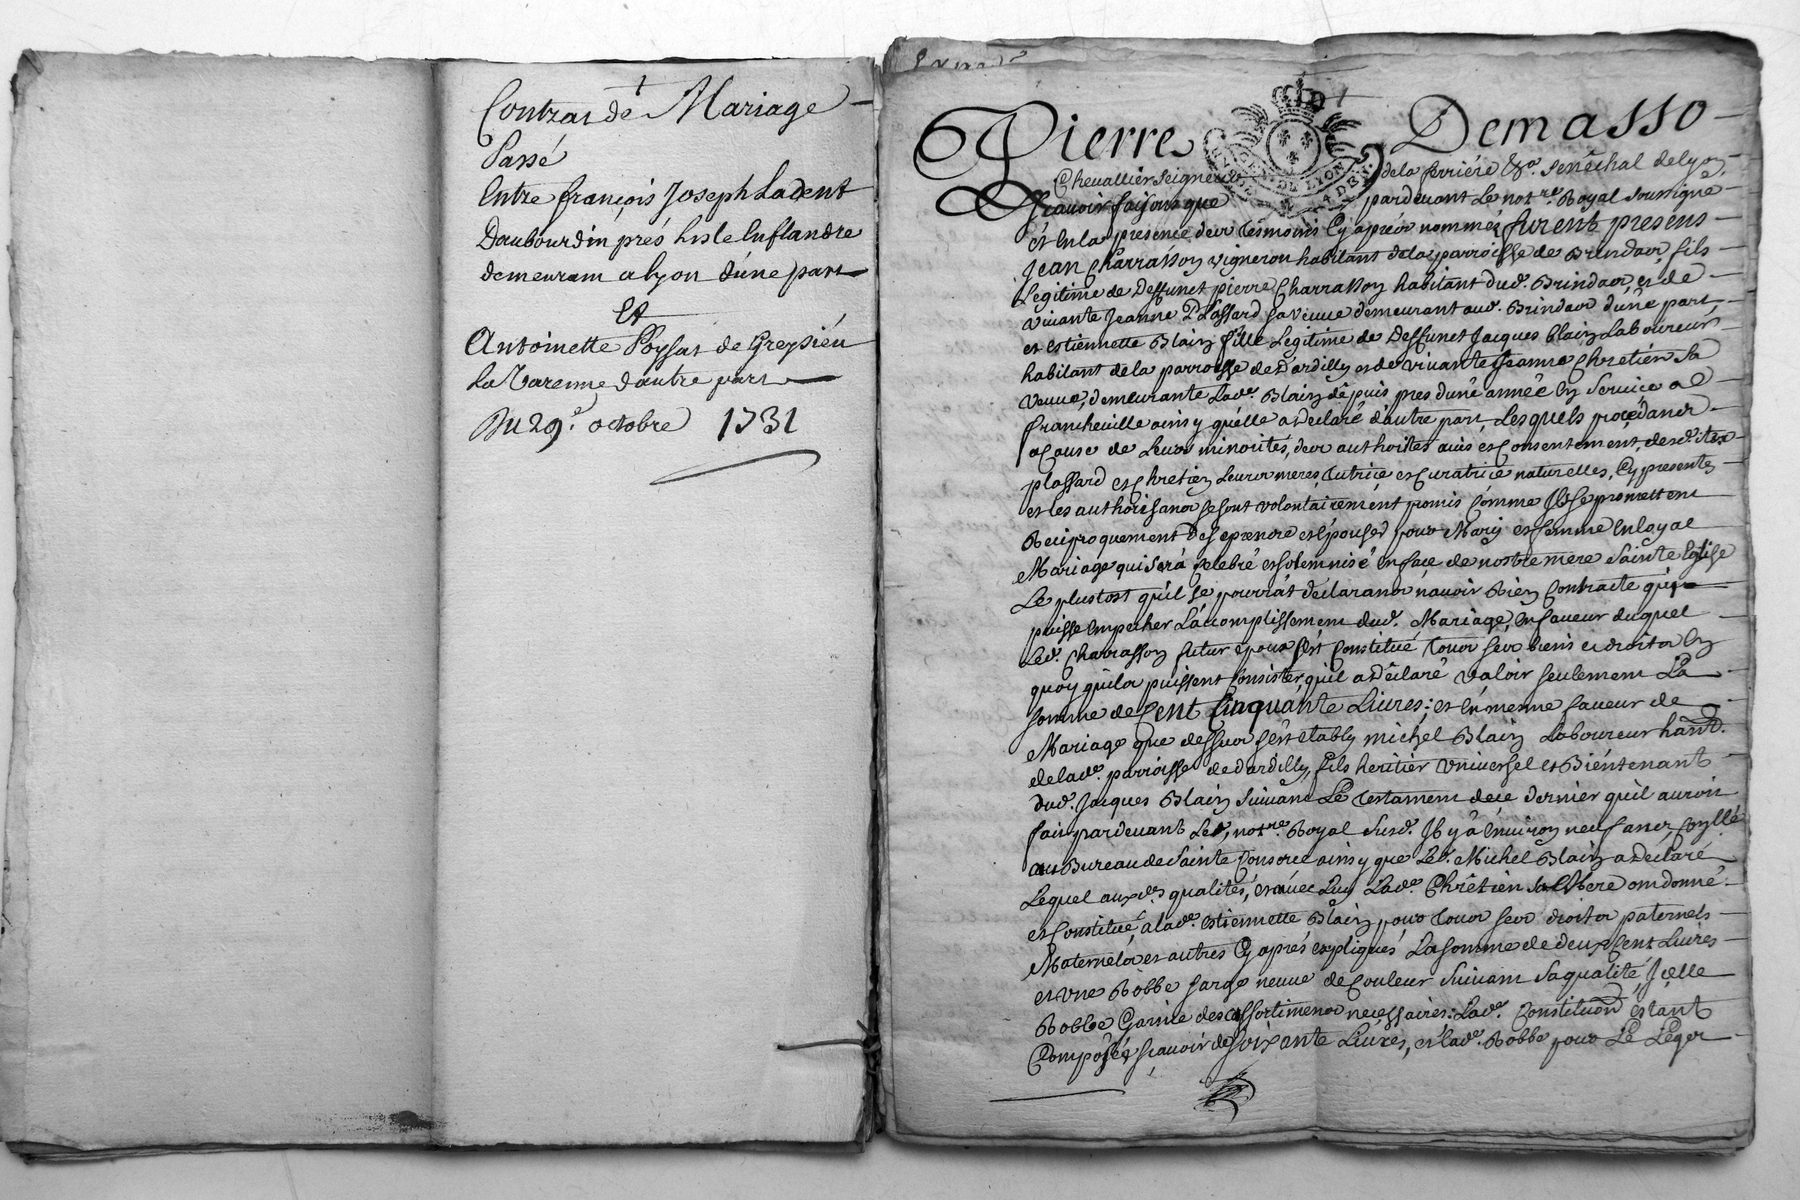 Contrat de Mariage
Passé
Entre françois Joseph Ladent
Daubourdin prés Lisle Enflandre
demeurant a lyon d'une part
Et
Antoinette Poysat de Greysieu
La Varenne d'autre part
Du 29e. octobre 1731
Pierre Demasso
Chevallier seigneur de la ferriere &a. senéchal de lyon
Scavoir faisons que pardevant Le notre. Royal soussigné
et En la presence des tesmoins Cy aprés nommés furent presens
Jean Charrasson vigneron habitant de la parroisse de Brindas, fils
Legitime de Deffunct pierre Charrasson habitant dud. Brindas, et de
vivante Jeanne Plassard sa veuve demeurant aud. Brindas d'une part
et estiennette Blain fille Legitime de Deffunct Jacques Blain Laboureur
habitant de la parroisse de Dardilly et de vivante Jeanne Chretien sa
veuve, demeurante Lade. Blain depuis pres d'une année En service a
francheville ainsy qu'elle a declaré d'autre part, Lesquels procedants
a Cause de Leurs minorités, des authorités avis et Consentement, desd.
plassard et Chretien Leurs meres, tutrice et Curatrice naturelles, Cy presentes
et les authorisants se sont volontairement promis Comme Ils se promettent
Reciproquement de se prendre et Epouser pour Mary et femme En loyal
Mariage qui sera Celebré et solemnisé En face de nostre mere Sainte Eglise
Le plustost qu'il se pourra declarants n'avoir Rien Contracté qui
puisse Empecher L'accomplissement dud. Mariage, En faveur duquel
Led. Charrasson futur epoux s'est Constitué tous ses biens et droits En
quoy quils puissent Consister qu'il a declaré valoir seulement La
somme de Cent Cinquante Livres; et En meme faveur de
Mariage que dessus s'est etably michel Blain Laboureur habnt.
de lade. parroisse de dardilly, fils heritier universel et Bientenant
dud. Jacques Blain suivant Le testament de ce dernier qu'il auroit
fait pardevant Led. notre. Royal susd. Il y a Environ neuf ans, Conllé
au Bureau de Sainte Consorce ainsy que Led. Michel Blain a Declaré
Lequel auxdes. qualités, et avec Luy Lade. Chretien sa Mere ont donné
et Constitué, a lade. estiennette Blain pour tous ses droits paternels
Maternels et autres Cy aprés expliqués La somme de deux Cent Livres
et une Robbe sarge neuve de Couleur suivant sa qualité, Icelle
Robbe Garnie des assortiments necessaires; Lade. Constitution estant
Composée scavoir de soixante Livres, et lade. Robbe pour Le Leger